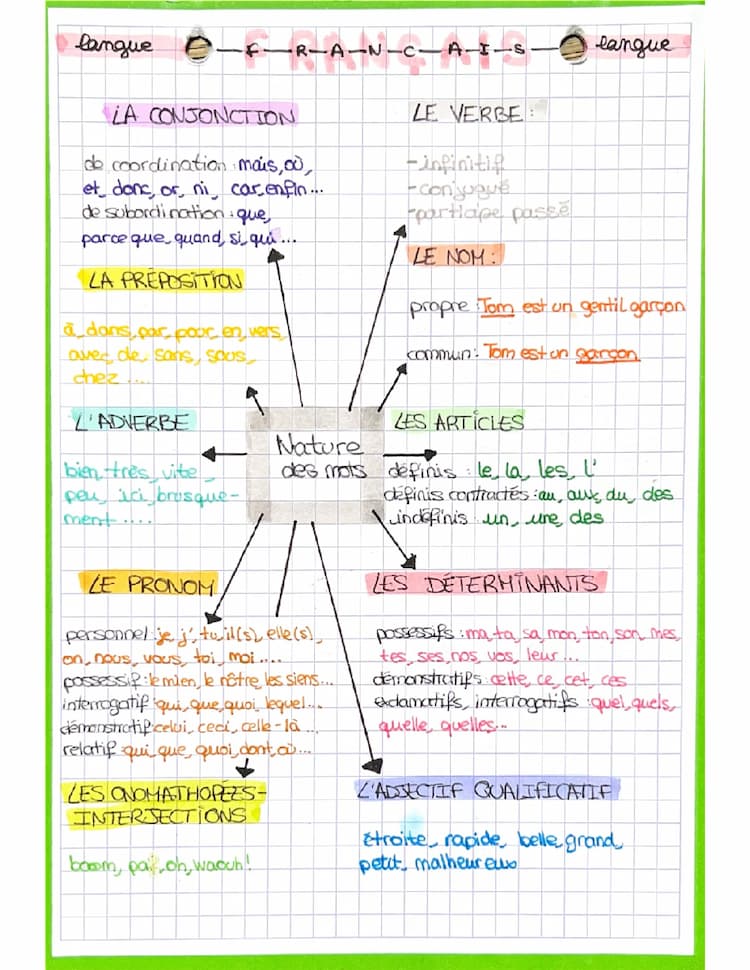 langue F-R-A-N-C-A-I-S langue
FRANÇAIS
LA CONJONCTION
de coordination : mais, où,
et, donc, or, ni, car, enfin...
de subordination : que,
parce que, quand, si, qui...
LE VERBE :
-infinitif
-conjugué
-participe passé
LA PRÉPOSITION
à, dans, par, pour, en, vers,
avec, de, sans, sous,
chez ....
LE NOM :
propre : Tom est un gentil garçon
commun : Tom est un garçon
L'ADVERBE
bien, très, vite,
peu, ici, brusque-
ment ....
Nature
des mots
LES ARTICLES
définis : le, la, les, l'
définis contractés : au, aux, du, des
indéfinis : un, une, des
LE PRONOM
personnel : je, j', tu, il(s), elle(s),
on, nous, vous, toi, moi ....
possessif : le mien, le nôtre, les siens...
interrogatif : qui, que, quoi, lequel...
démonstratif : celui, ceci, celle-là ...
relatif : qui, que, quoi, dont, où...
LES DÉTERMINANTS
possessifs : ma, ta, sa, mon, ton, son, mes,
tes, ses, nos, vos, leur ...
démonstratifs : cette, ce, cet, ces
exclamatifs, interrogatifs : quel, quels,
quelle, quelles...
LES ONOMATHOPÉES-
INTERJECTIONS
boom, paf, oh, waouh!
L'ADJECTIF QUALIFICATIF
étroite, rapide, belle, grand,
petit, malheureux